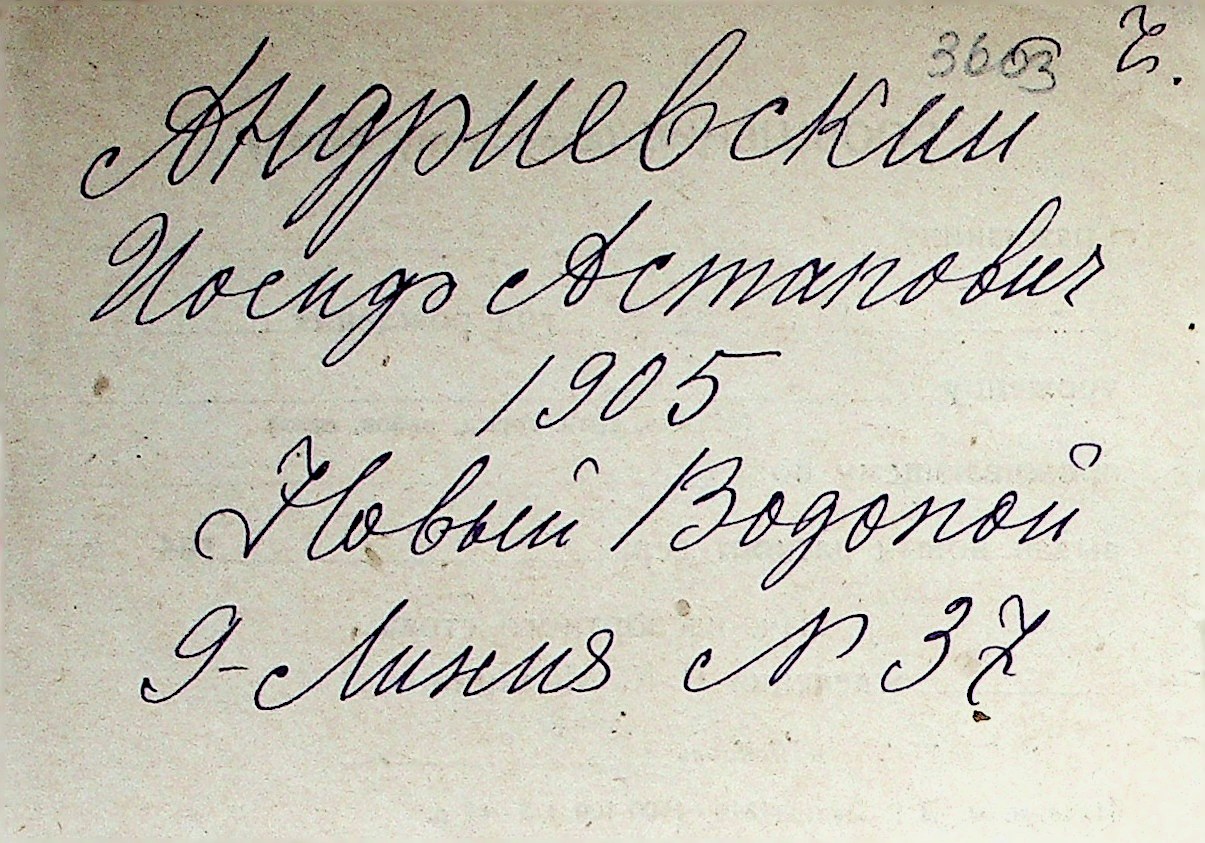 3603 г.
Андриевский
Иосиф Астапович
1905
Новый Водопой
9-Линия № 37